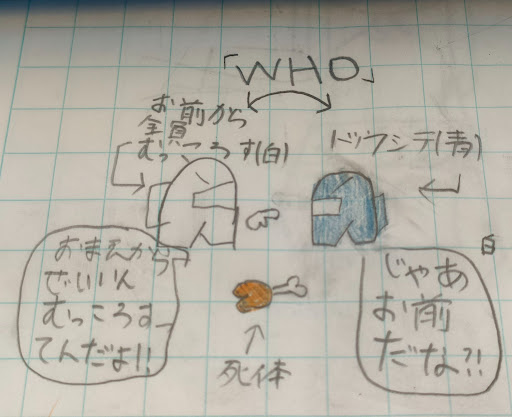 「WHO」
お前から
全員
むっころす(白)
ドウシテ(青)
白
おまえから
ぜいいん
むっころすっ
てんだよ!!
じゃあ
お前
だな?!
死体